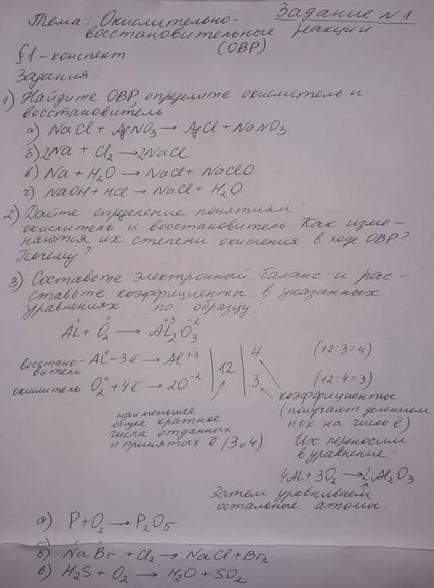 Задание N1
Тема: Окислительно-
восстановительные реакции
(ОВР)
§1 - конспект
Задания:
1) Найдите ОВР, определите окислитель и
восстановитель
а) NaCl + AgNO₃ → AgCl + NaNO₃
б) 2Na + Cl₂ → 2NaCl
в) Na + H₂O → NaCl + NaClO
г) NaOH + HCl → NaCl + H₂O
2) Дайте определение понятиям:
окислитель и восстановитель. Как изме-
няются их степени окисления в ходе ОВР?
Почему?
3) Составьте электронный баланс и рас-
ставьте коэффициенты в указанных
уравнениях по образцу:
Al⁰ + O₂⁰ → Al₂⁺³O₃⁻²
восстано-
витель Al⁰ - 3ē → Al⁺³ | 12 | 4 (12:3=4)
окислитель O₂⁰ + 4ē → 2O⁻² | 3 (12:4=3)
наименьшее
общее кратное
числа отданных
и принятых ē (3 и 4)
коэффициенты
(получают делением
НОК на число ē)
Их переносим
в уравнение:
4Al + 3O₂ → 2Al₂O₃
Затем уравниваем
остальные атомы.
а) P + O₂ → P₂O₅
б) NaBr + Cl₂ → NaCl + Br₂
в) H₂S + O₂ → H₂O + SO₂